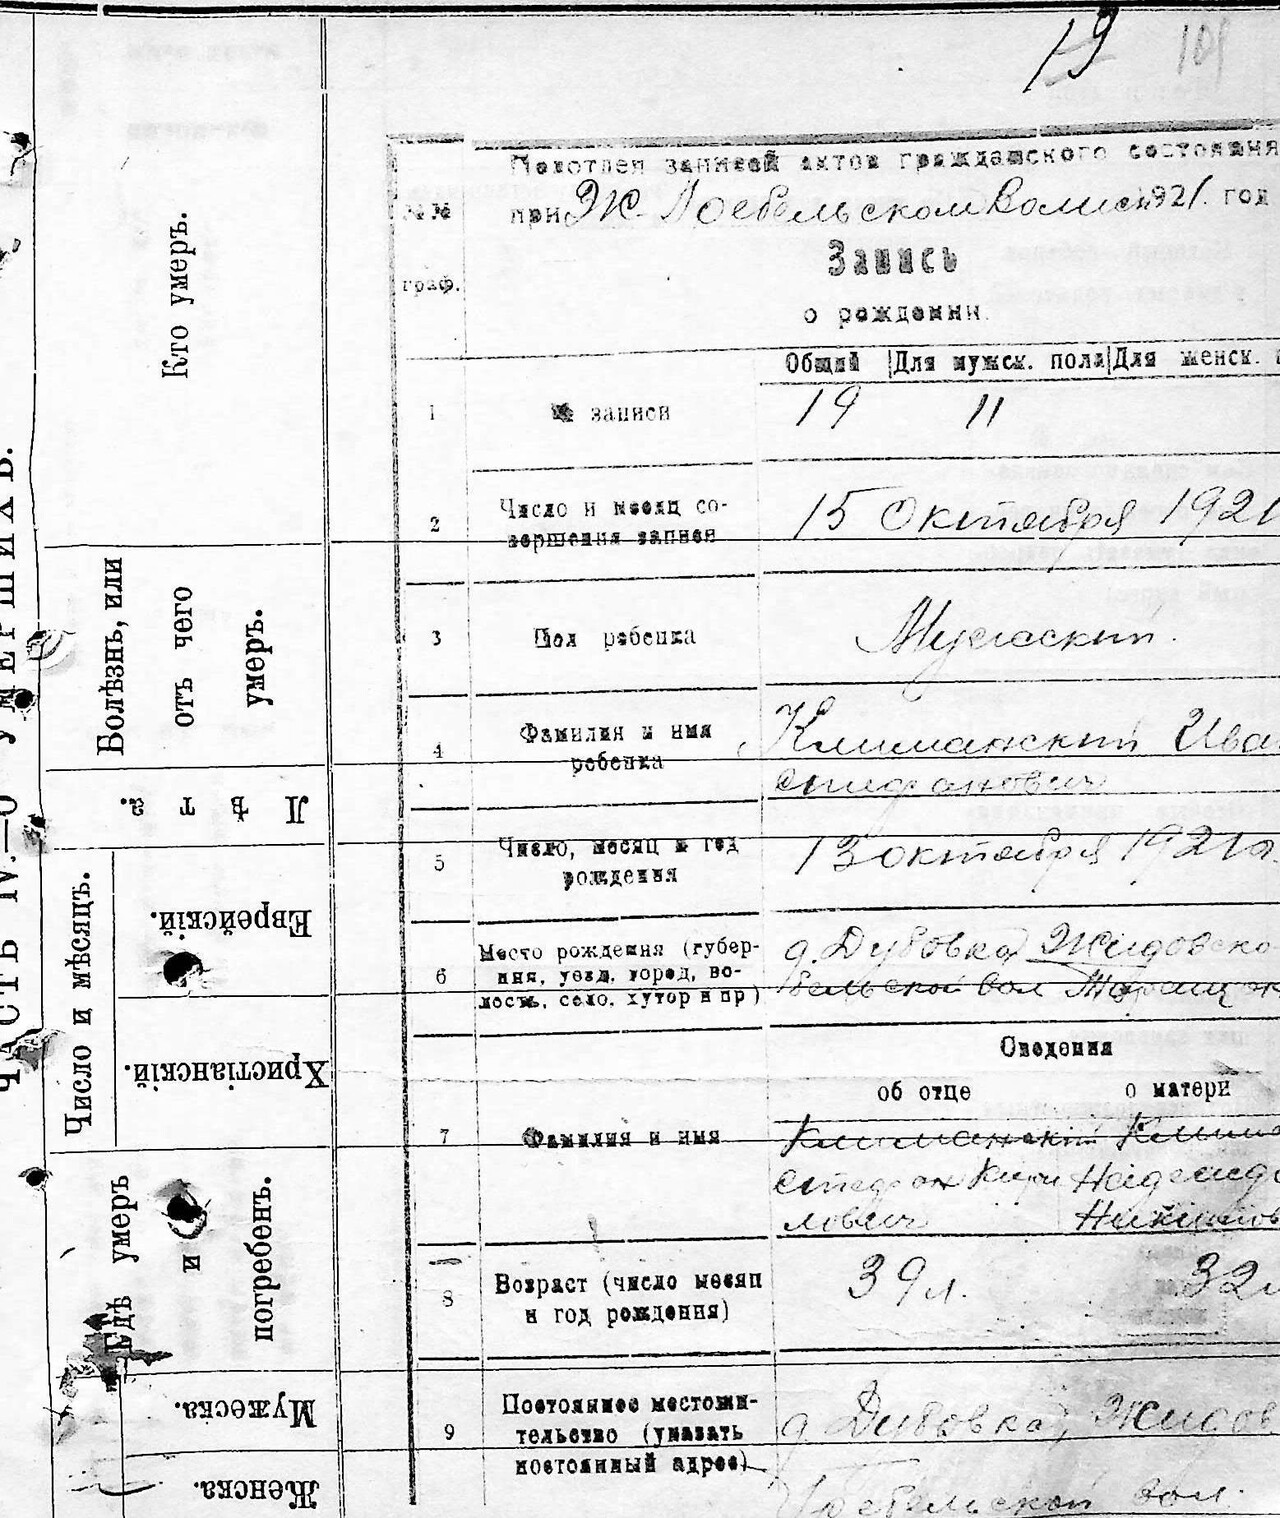 19 101
Подотдел записей актов гражданского состояния
при Ж-Гребельском Волисп. 1921. год
№№
граф.
Запись
о рождении.
Общий Для мужск. пола Для женск.
1 № записи 19 11
2 Число и месяц со-
вершения записи 15 Октября 1921
3 Пол ребенка Мужский.
4 Фамилия и имя
ребенка Климанский Иван
Стефанович
5 Число, месяц и год
рождения 13 октября 1921 г.
6 Место рождения (губер-
ния, уезд, город, во-
лость, село, хутор и пр) д. Дубовка Жидовско
бельской вол Таращан
Сведения
об отце о матери
7 Фамилия и имя Климанский Клима
Стефан Кири Надежда
лович
8 Возраст (число месяц
и год рождения) 39 л. 32
9 Постоянное местожи-
тельство (указать
постоянный адрес) д. Дубовка, Жидов
Гребельской вол.
ЧАСТЬ IV.—О УМЕРШИХЪ.
Кто умеръ.
Болѣзнь, или
отъ чего
умеръ.
Лѣта.
Число и мѣсяцъ.
Еврейскій.
Христіанскій.
Гдѣ умеръ
и
погребенъ.
Мужеска.
Женска.